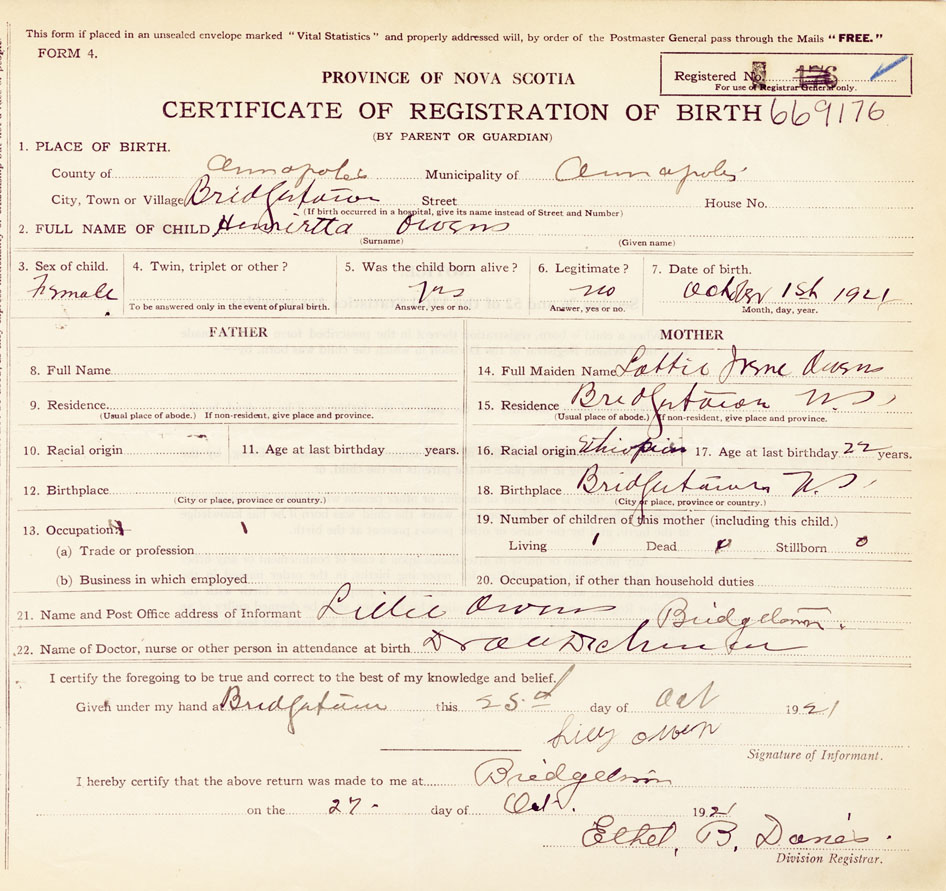 This form if placed in an unsealed envelope marked "Vital Statistics" and properly addressed will, by order of the Postmaster General pass through the Mails "FREE."
FORM 4.
PROVINCE OF NOVA SCOTIA
Registered No. 176
For use of Registrar General only.
CERTIFICATE OF REGISTRATION OF BIRTH 669176
(BY PARENT OR GUARDIAN)
1. PLACE OF BIRTH.
County of Annapolis Municipality of Annapolis
City, Town or Village Bridgetown Street House No.
(If birth occurred in a hospital, give its name instead of Street and Number)
2. FULL NAME OF CHILD Henrietta Owens
(Surname) (Given name)
3. Sex of child. 4. Twin, triplet or other? 5. Was the child born alive? 6. Legitimate? 7. Date of birth.
Female yes no October 1st 1921
To be answered only in the event of plural birth. Answer, yes or no. Answer, yes or no. Month, day, year.
FATHER MOTHER
8. Full Name 14. Full Maiden Name Lottie Irene Owens
9. Residence. 15. Residence Bridgetown N.S.
(Usual place of abode.) If non-resident, give place and province. (Usual place of abode.) If non-resident, give place and province.
10. Racial origin 11. Age at last birthday years. 16. Racial origin Ethiopian 17. Age at last birthday 22 years.
12. Birthplace 18. Birthplace Bridgetown N.S.
(City or place, province or country.) (City or place, province or country.)
13. Occupation: 19. Number of children of this mother (including this child.)
(a) Trade or profession Living 1 Dead 0 Stillborn 0
(b) Business in which employed 20. Occupation, if other than household duties
21. Name and Post Office address of Informant Lillie Owens Bridgetown.
22. Name of Doctor, nurse or other person in attendance at birth Dr
I certify the foregoing to be true and correct to the best of my knowledge and belief.
Given under my hand at Bridgetown this 25.d day of Oct 1921
Lilly Owen
Signature of Informant.
I hereby certify that the above return was made to me at Bridgetown
on the 27 day of Oct. 1921
Ethel. B. Danes.
Division Registrar.